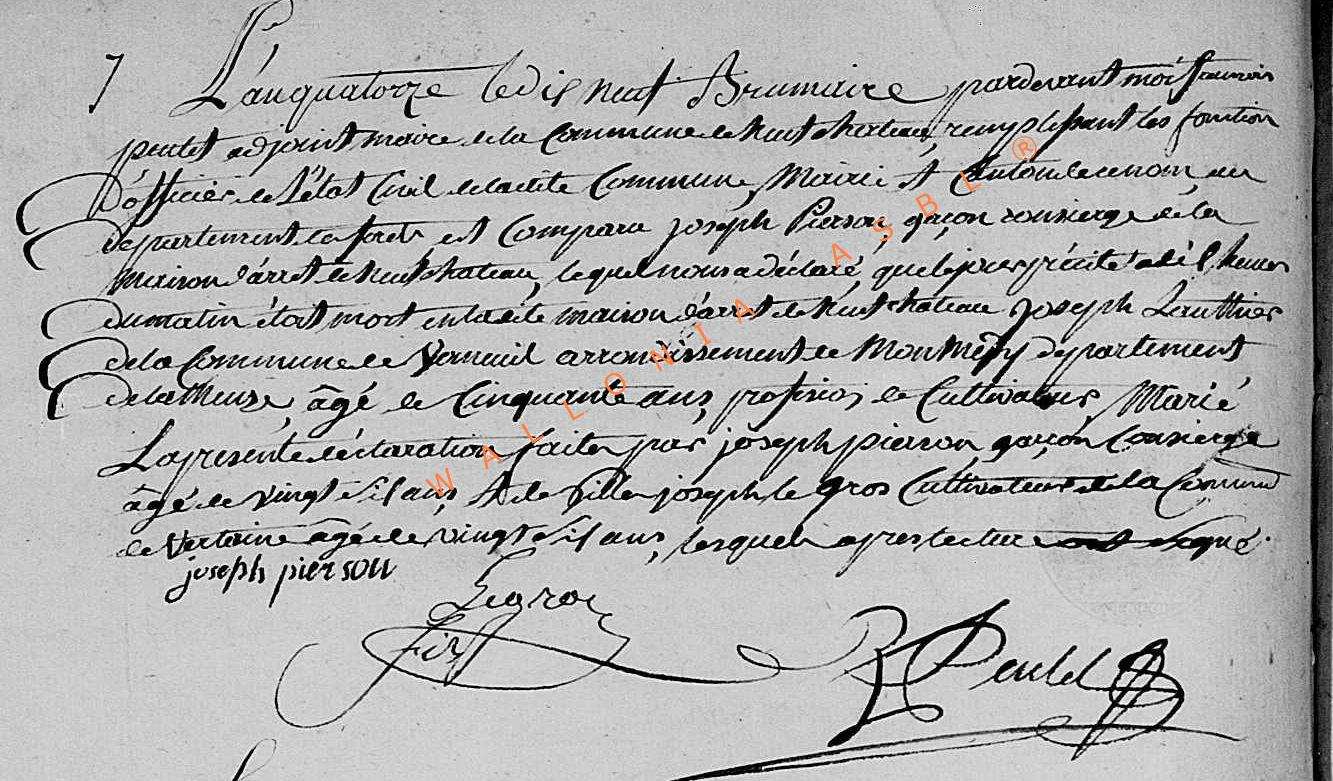 7
L'an quatorze le dix neuf Brumaire pardevant moi francois
poulet adjoint maire de la Commune de Neufchateau, remplissant les fonction
d'officier de l'état Civil de ladite Commune, Mairie et Canton de ce nom, au
departement des forets, est Comparu joseph Pierson, garçon consierge de la
maison d'arret de Neufchateau, lequel nous a déclaré, que le jour précité a dix heures
du matin étoit mort en ladite maison d'arret de Neufchateau joseph Lauthier
de la Commune de Verneuil arrondissement de Monmédy departement
de la Meuse, âgé de Cinquante ans, profession de Cultivateur, Marié
La presente déclaration faite par joseph pierson garçon Consierge
âgé de vingt six ans, et de Gille joseph le gros Cultivateur de la Commune
de Verlaine agé de vingt six ans, lesquels apres lecture ont signé.
joseph pierson
Legros
fils
Poulet
WALLONIA ASBL ®